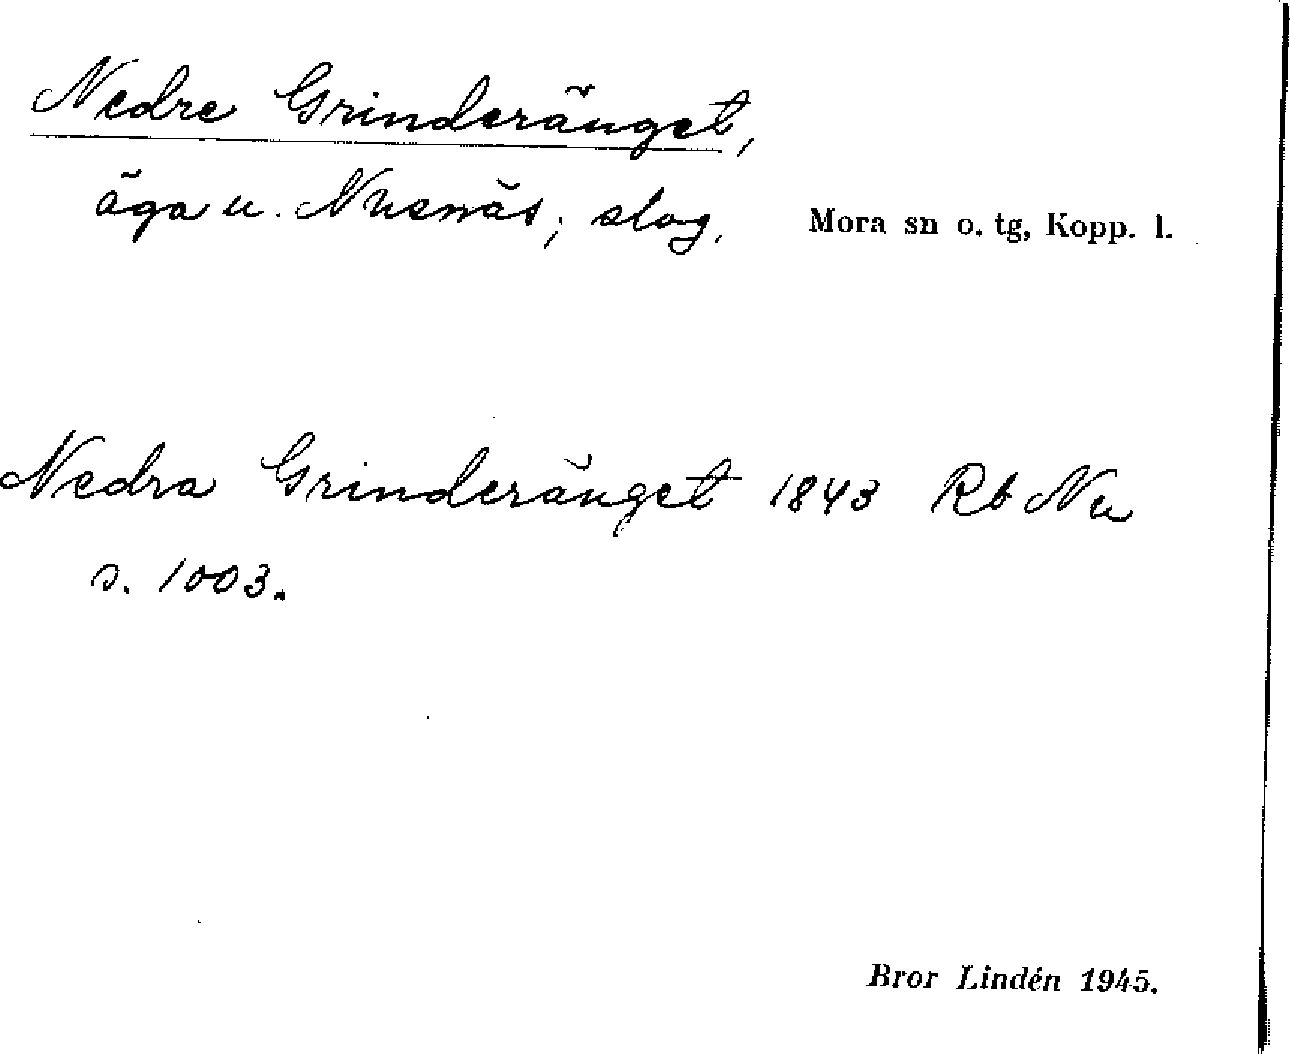 Nedre Grinderänget,
äga u. Nusnäs; slog. Mora sn o. tg, Kopp. l.
Nedra Grinderänget 1843 Rb Nu
s. 1003.
Bror Lindén 1945.